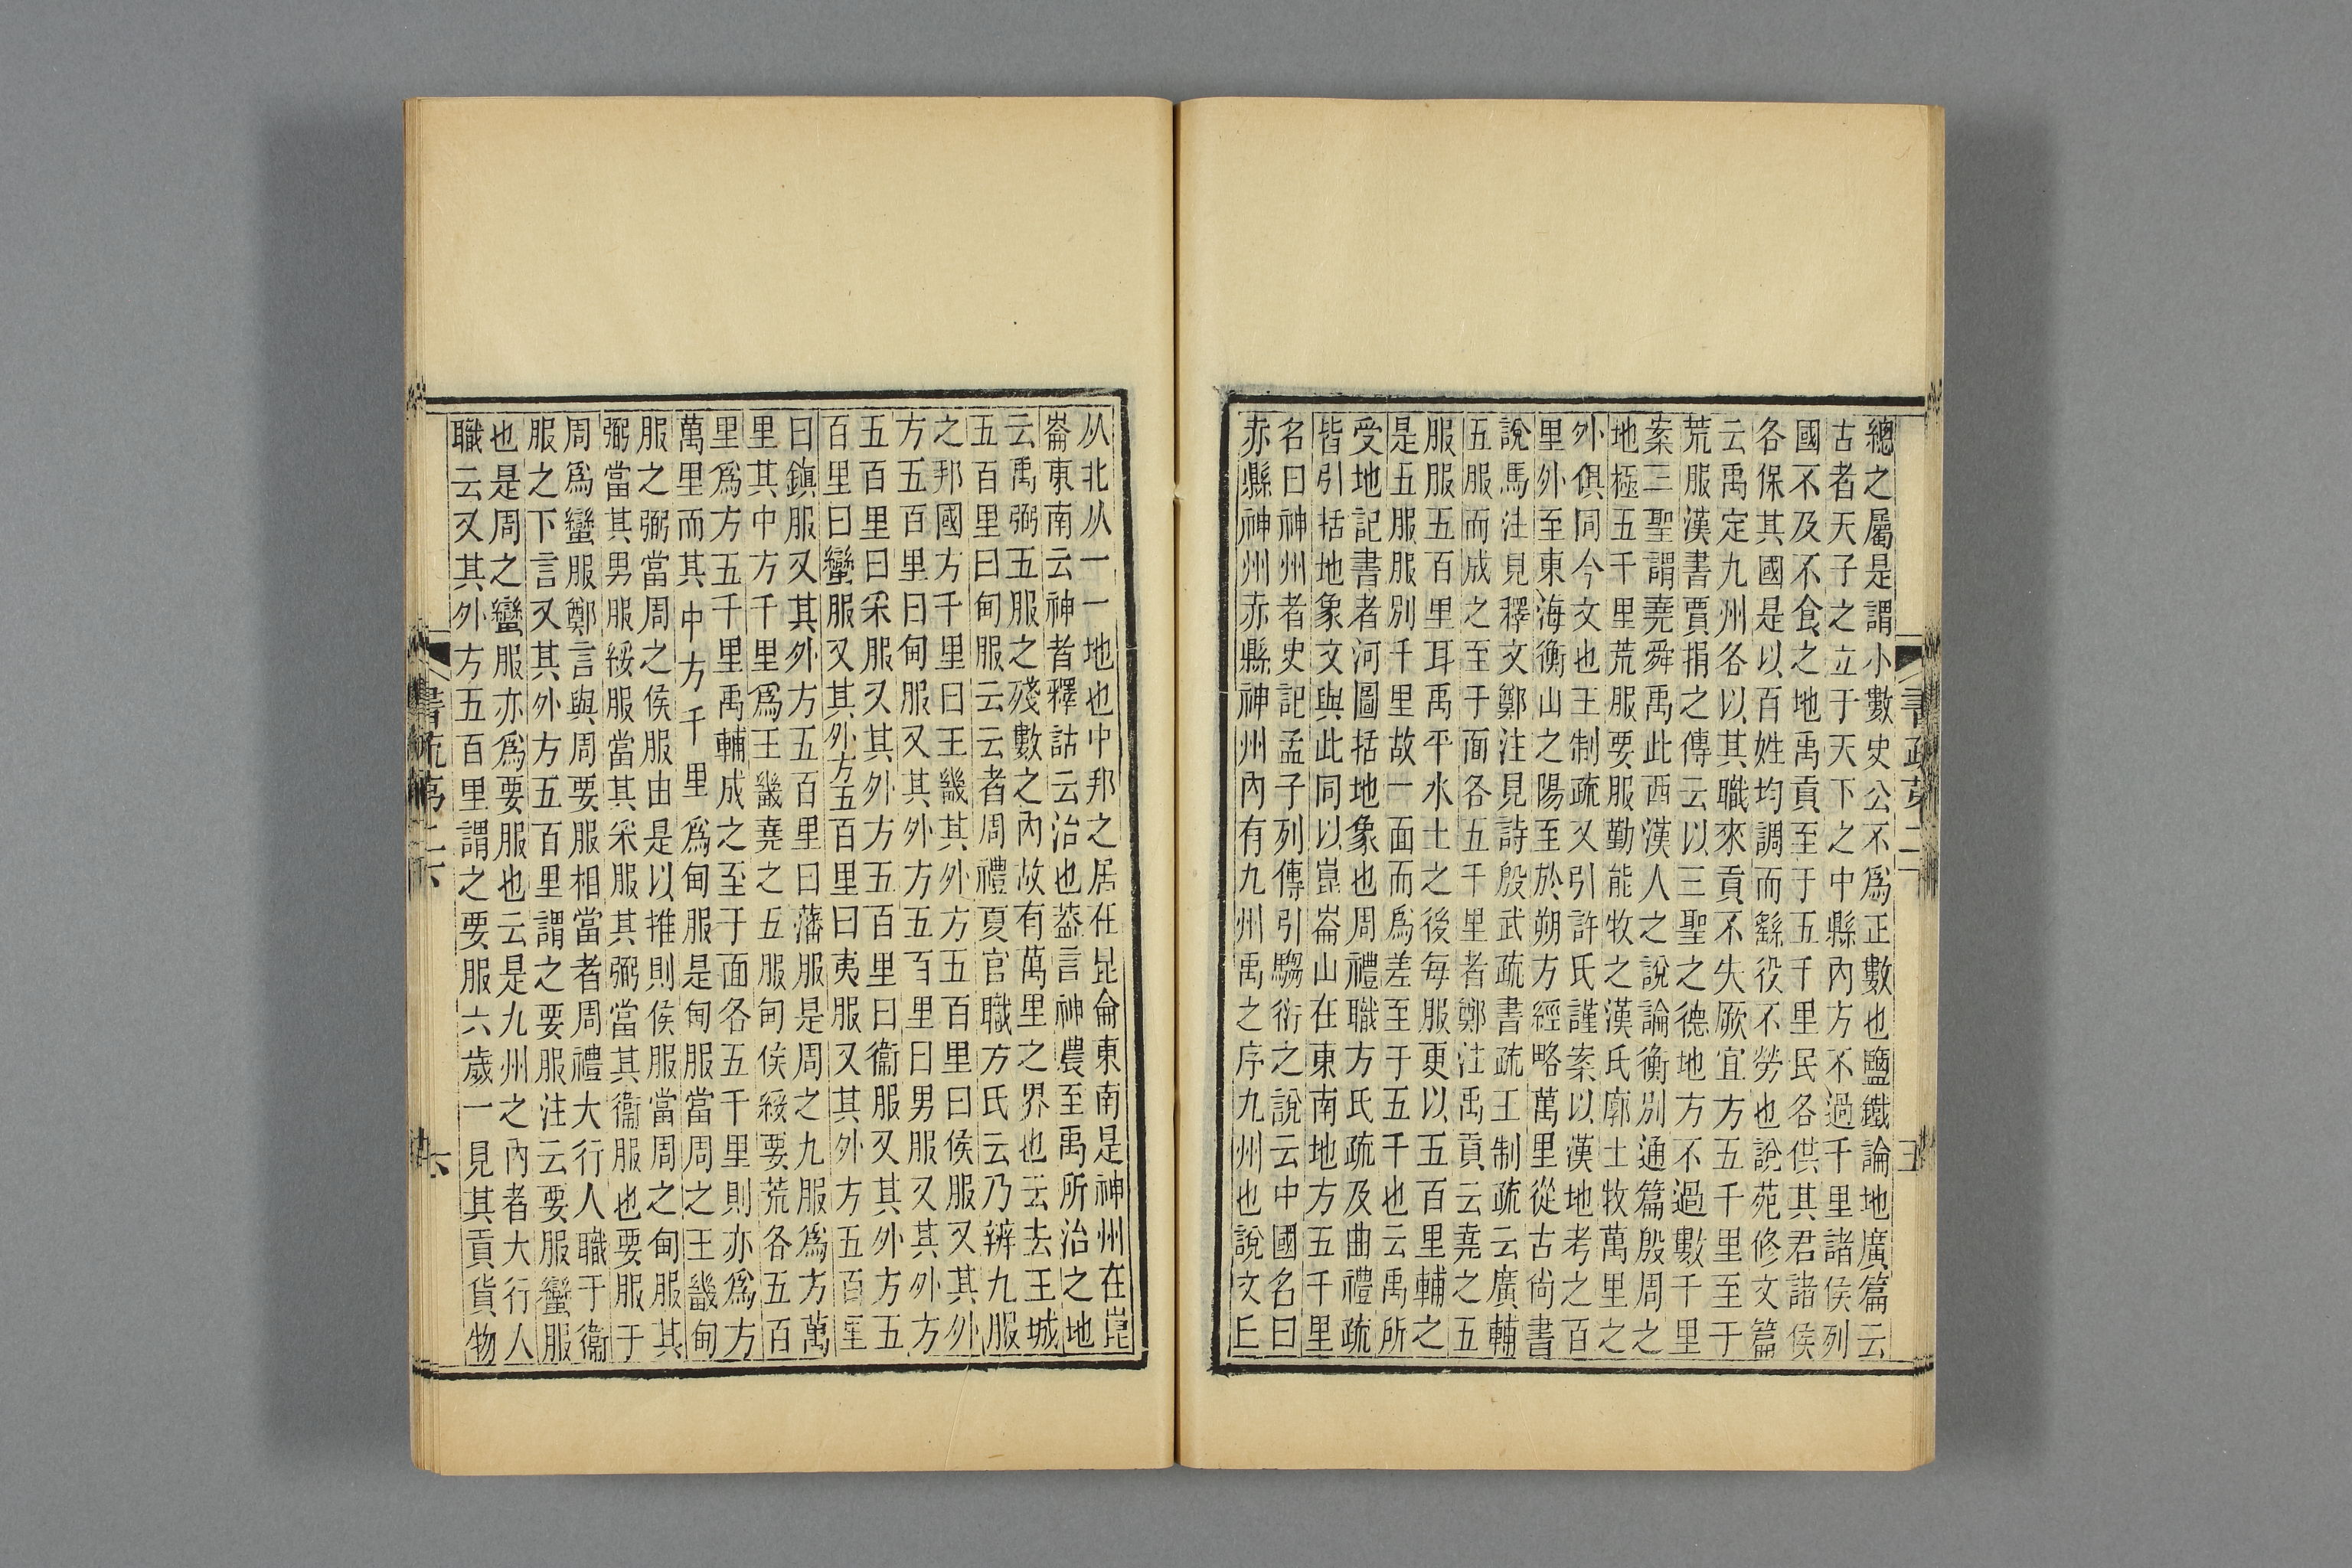 緫之屬是謂小數史公不爲正數也鹽鐵論地廣篇云
古者天子之立于天下之中縣內方不過千里諸侯列
國不及不食之地禹貢至于五千里民各供其君諸侯
各保其國是以百姓均調而繇役不勞也說苑修文篇
云禹定九州各以其職來貢不失厥宜方五千里至于
荒服漢書賈捐之傳云以三聖之德地方不過數千里
案三聖謂堯舜禹此西漢人之說論衡別通篇殷周之
地極五千里荒服要服勤能牧之漢氏廓土牧萬里之
外俱同今文也王制疏又引許氏謹案以漢地考之百
里外至東海衡山之陽至於朔方經略萬里從古尚書
說馬注見釋文鄭注見詩殷武疏書疏王制疏云廣輔
五服而成之至于面各五千里者鄭注禹貢云堯之五
服服五百里耳禹平水土之後每服更以五百里輔之
是五服服別千里故一面而爲差至于五千也云禹所
受地記書者河圖括地象也周禮職方氏疏及曲禮疏
皆引括地象文與此同以崑崙山在東南地方五千里
名曰神州者史記孟子列傳引騶衍之說云中國名曰
赤縣神州赤縣神州內有九州禹之序九州也說文丘
从北从一一地也中邦之居在昆侖東南是神州在崑
崙東南云神者釋詁云治也葢言神農至禹所治之地
云禹弼五服之殘數之內故有萬里之界也云去王城
五百里曰甸服云云者周禮夏官職方氏云乃辨九服
之邦國方千里曰王畿其外方五百里曰侯服又其外
方五百里曰甸服又其外方五百里曰男服又其外方
五百里曰采服又其外方五百里曰衞服又其外方五
百里曰蠻服又其外方五百里曰夷服又其外方五百里
曰鎮服又其外方五百里曰藩服是周之九服爲方萬
里其中方千里爲王畿堯之五服甸侯綏要荒各五百
里爲方五千里禹輔成之至于面各五千里則亦爲方
萬里而其中方千里爲甸服是甸服當周之王畿甸
服之弼當周之侯服由是以推則侯服當周之甸服其
弼當其男服綏服當其采服其弼當其衞服也要服于
周爲蠻服鄭言與周要服相當者周禮大行人職于衞
服之下言又其外方五百里謂之要服注云要服蠻服
也是周之蠻服亦爲要服也云是九州之內者大行人
職云又其外方五百里謂之要服六歲一見其貢貨物